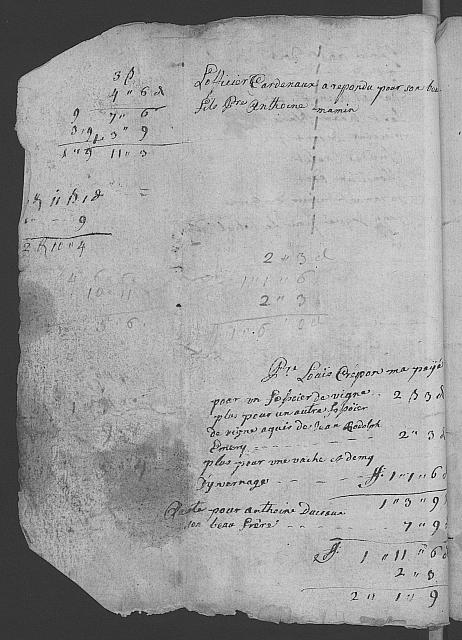 3 ß
4 " 6 d
9 7 " 6
3 " 9 3 " 9
1 " 9 11 " 3
L'officier Cardenaux a repondu pour son beau
fils Pre Anthoine mamin
11 ß 1 d
9
2 10 " 4
2 " 3 d
1 " 1 " 6
2 " 3
1 " 6
Pre Louis Crepon ma payé
pour un fessoier de vigne - 2 ß 3 d
plus pour un autre fessoier
de vigne aquis de Jean Rodolph
Emery - - - 2 " 3 d
plus pour une vache et demy
dyvernage - - - - ff. 1 " 1 " 6 d
1 " 3 " 9
pour anthoine
son beau frere - - - - 7 " 9
ff. 1 " 11 " 6 d
2 " 3
2 " 1 " 9